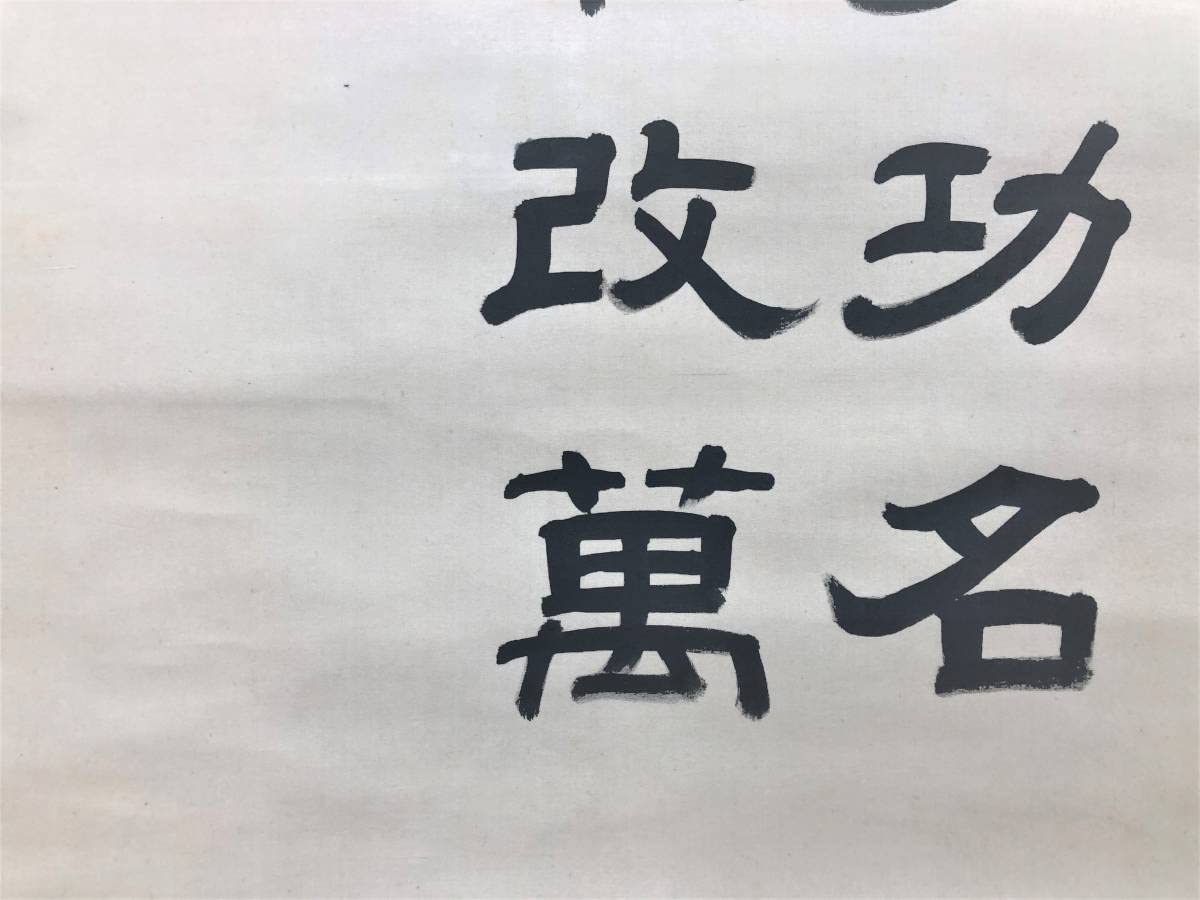 功名
改萬